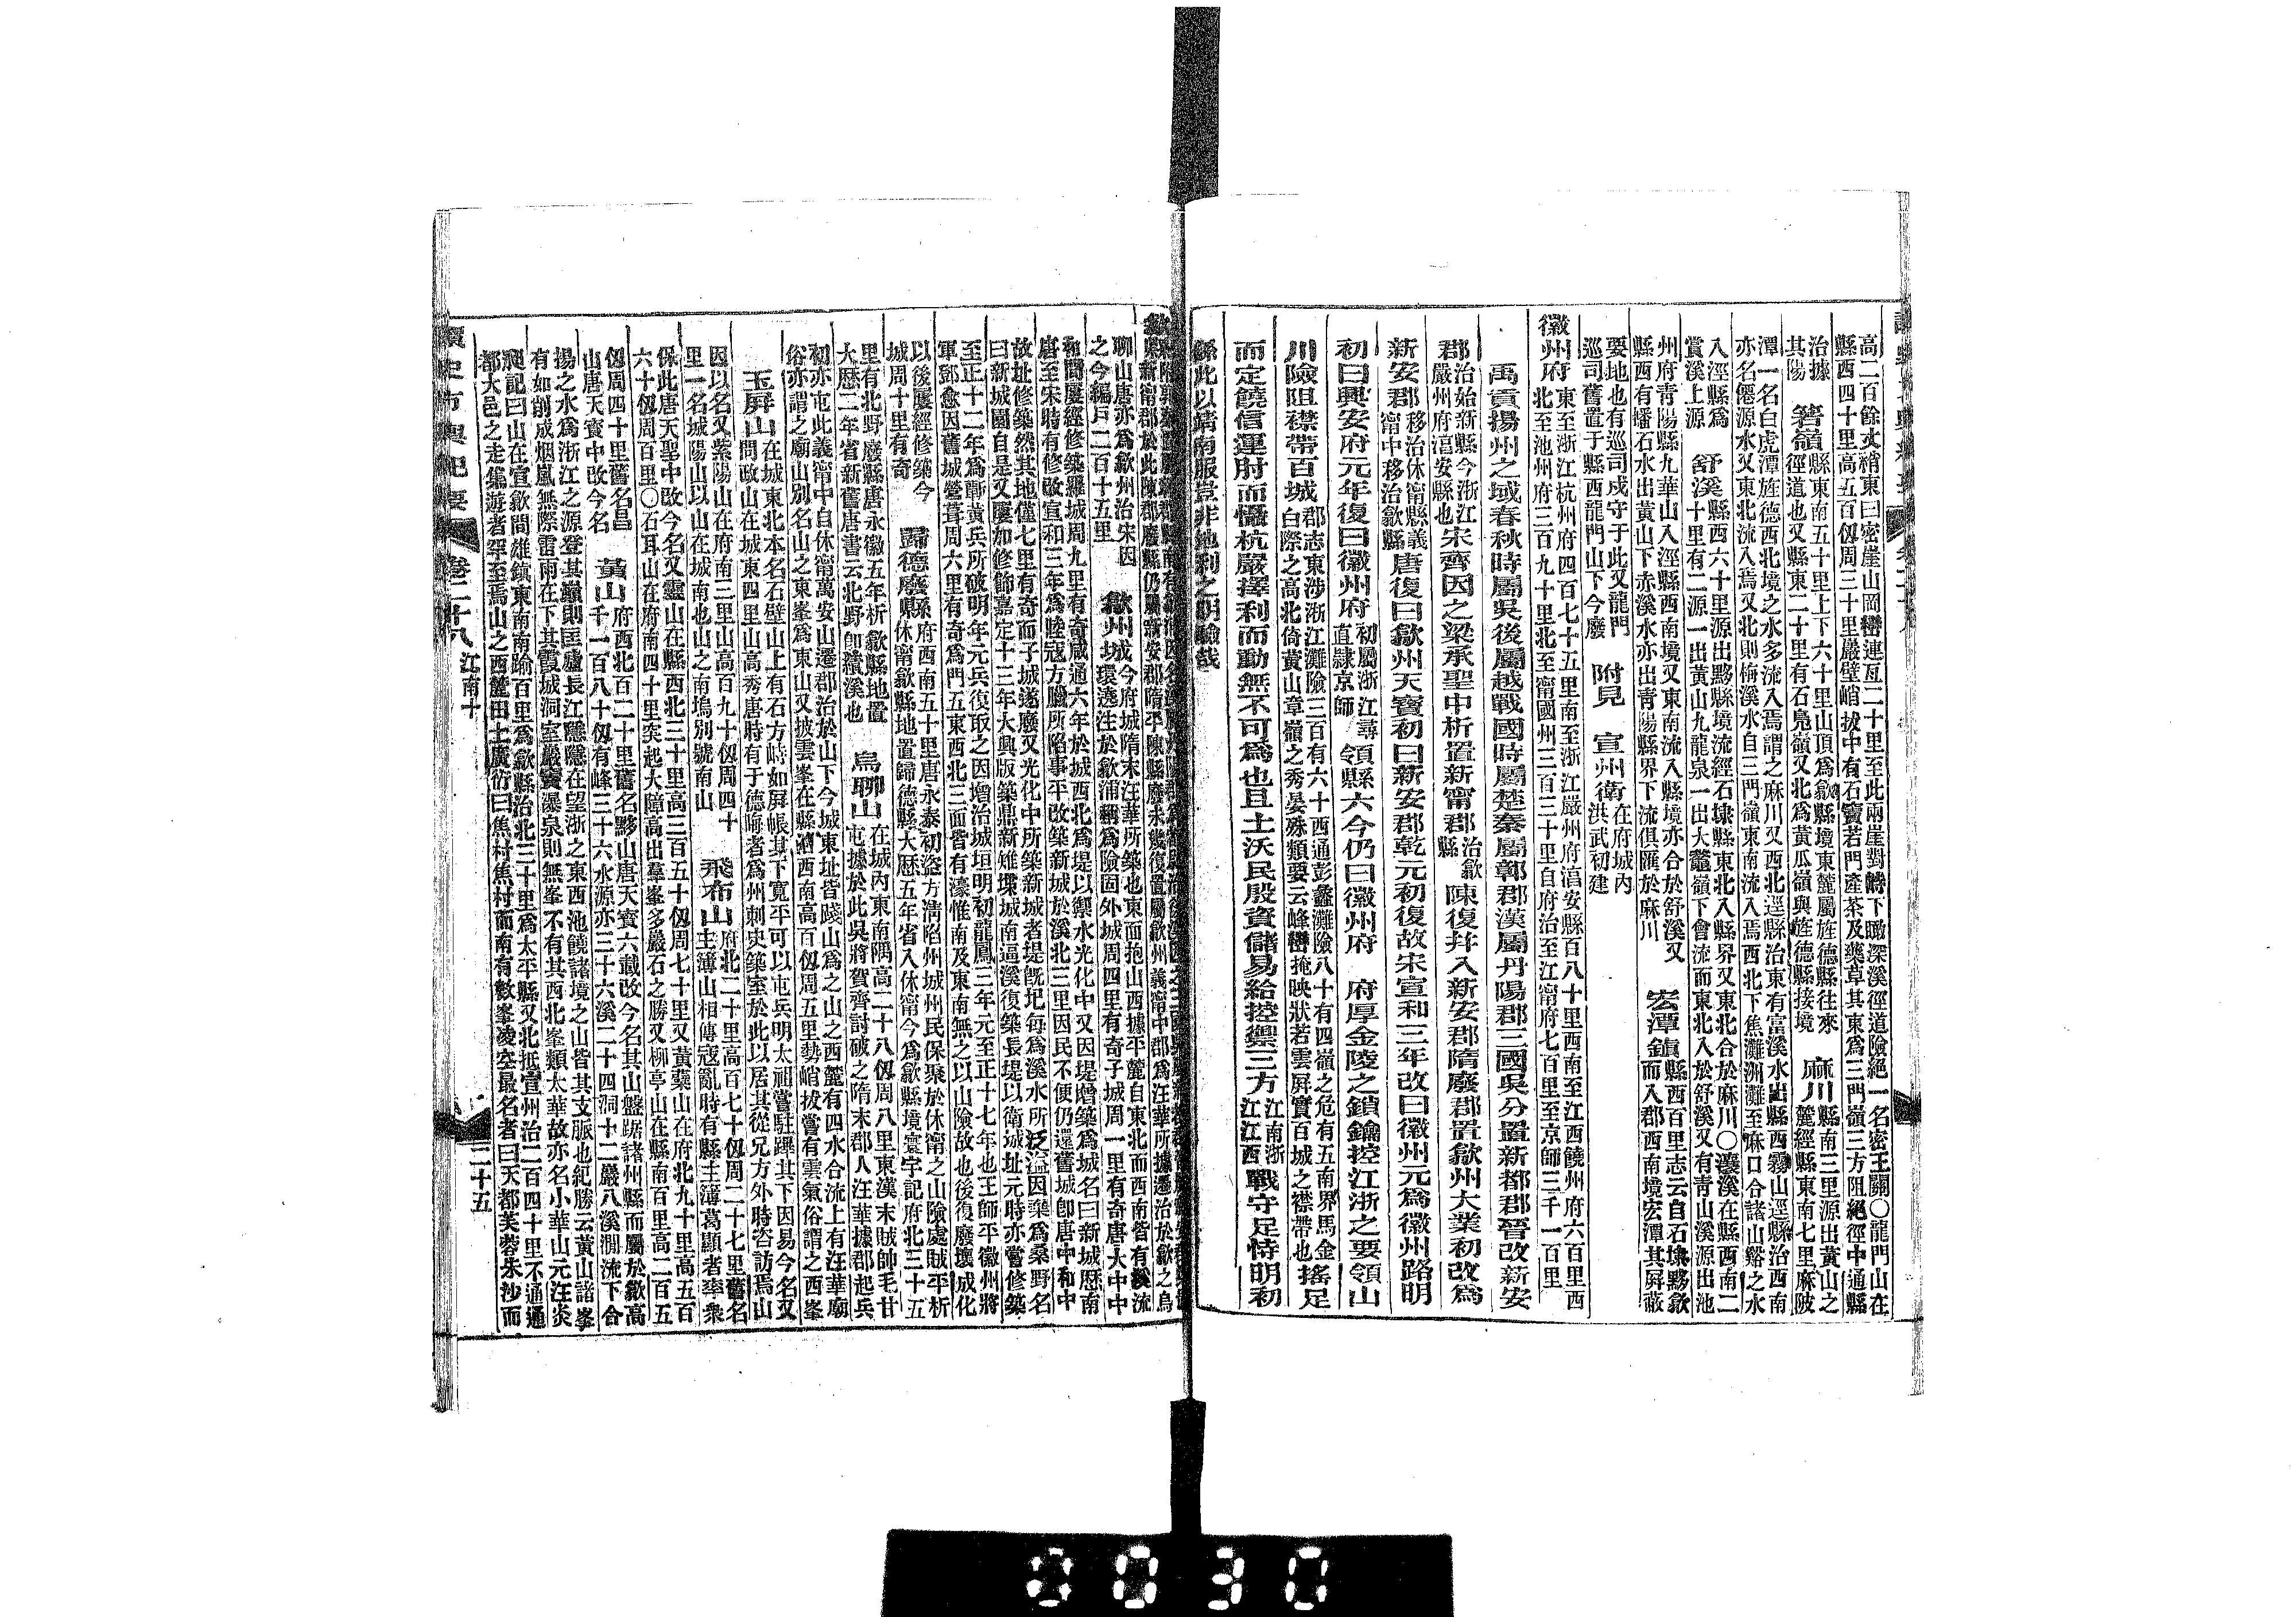 高二百餘丈稍東曰密崖山岡巒連亙二十里至此兩崖對峙下瞰深溪徑道險絕一名密王關○龍門山在
縣西四十里高五百仭周三十里巖壁峭拔中有石竇若門產茶及藥草其東爲三門嶺三方阻絕徑中通縣
治據
其陽
箬嶺
縣東南五十里上下六十里山頂爲歙縣境東麓屬旌德縣往來
徑道也又縣東二十里有石鳧嶺又北爲黃瓜嶺與旌德縣接境
麻川
縣南三里源出黃山之
麓經縣東南七里麻陂
潭一名白虎潭旌德西北境之水多流入焉謂之麻川又西北逕縣治東有富溪水出縣西霧山逕縣治西南
亦名僊源水又東北流入焉又北則梅溪水自三門嶺東南流入焉西北下焦灘洲灘至麻口合諸山谿之水
入涇縣爲
賞溪上源
舒溪
縣西六十里源出黟縣境流經石埭縣東北入縣界又東北合於麻川○瀼溪在縣西南二
十里有二源一出黃山九龍泉一出大鼇嶺下會流而東北入於舒溪又有青山溪源出池
州府青陽縣九華山入涇縣西南境又東南流入縣境亦合於舒溪又
縣西有嶓石水出黃山下赤溪水亦出青陽縣界下流俱匯於麻川
宏潭鎮
縣西百里志云自石埭黟歙
而入郡西南境宏潭其屏蔽
要地也有巡司戍守于此又龍門
巡司舊置于縣西龍門山下今廢
附見
宣州衛
在府城內
洪武初建
徽州府
東至浙江杭州府四百七十五里南至浙江嚴州府淳安縣百八十里西南至江西饒州府六百里西
北至池州府三百九十里北至甯國州三百三十里自府治至江甯府七百里至京師三千一百里
禹貢揚州之域春秋時屬吳後屬越戰國時屬楚秦屬鄣郡漢屬丹陽郡三國吳分置新都郡晉改新安
郡
治始新縣今浙江
嚴州府淳安縣也
宋齊因之梁承聖中析置新甯郡
治歙
縣
陳復幷入新安郡隋廢郡置歙州大業初改爲
新安郡
移治休甯縣義
甯中移治歙縣
唐復曰歙州天寶初曰新安郡乾元初復故宋宣和三年改曰徽州元爲徽州路明
初曰興安府元年復曰徽州府
初屬浙江尋
直隸京師
領縣六今仍曰徽州府
府厚金陵之鎖鑰控江浙之要領山
川險阻襟帶百城
郡志東涉浙江灘險三百有六十西通彭蠡灘險八十有四嶺之危有五南界馬金
白際之高北倚黃山章嶺之秀晏殊類要云峰巒掩映狀若雲屏實百城之襟帶也
搖足
而定饒信運肘而懾杭嚴擇利而動無不可爲也且土沃民殷資儲易給控禦三方
江南浙
江江西
戰守足恃明初
繇此以靖南服豈非地利之明驗哉
聊山唐亦爲歙州治宋因
之今編戶二百十五里
歙州城
今府城隋末汪華所築也東面抱山西據平麓自東北而西南皆有溪流
環遶注於歙浦稱爲險固外城周四里有奇子城周一里有奇唐大中中
和間屢經修築羅城周九里有奇咸通六年於城西北爲堤以禦水光化中又因堤增築爲城名曰新城歷南
唐至宋時有修改宣和三年爲睦寇方臘所陷事平改築新城於溪北三里因民不便仍還舊城卽唐中和中
故址修築然其地僅七里有奇而子城遂廢又光化中所築新城者堤旣圮每爲溪水所泛溢因棄爲桑野名
曰新城園自是又屢加修飾嘉定十三年大興版築鼎新雉堞城南逼溪復築長堤以衛城址元時亦嘗修築
至正十二年爲蘄黃兵所破明年元兵復取之因增治城垣明初龍鳳三年元至正十七年也王師平徽州將
軍鄧愈因舊城營葺周六里有奇爲門五東西北三面皆有濠惟南及東南無之以山險故也後復廢壞成化
以後屢經修築今
城周十里有奇
歸德廢縣
府西南五十里唐永泰初盜方淸陷州城州民保聚於休甯之山險處賊平析
休甯歙縣地置歸德縣大歷五年省入休甯今爲歙縣境寰宇記府北三十五
里有北野廢縣唐永徽五年析歙縣地置
大歷二年省新舊唐書云北野卽績溪也
烏聊山
在城內東南隅高二十八仭周八里東漢末賊帥毛甘
屯據於此吳將賀齊討破之隋末郡人汪華據郡起兵
初亦屯此義甯中自休甯萬安山遷郡治於山下今城東址皆踐山爲之山之西麓有四水合流上有汪華廟
俗亦謂之廟山別名山之東峯爲東山又披雲峯在縣治西南高百仭周五里勢峭拔嘗有雲氣俗謂之西峯
玉屏山
在城東北本名石壁山上有石方峙如屏帳其下寬平可以屯兵明太祖嘗駐蹕其下因易今名又
問政山在城東四里山高秀唐時有于德晦者爲州刺史築室於此以居其從兄方外時咨訪焉山
因以名又紫陽山在府南三里山高百九十仭周四十
里一名城陽山以山在城南也山之南塢別號南山
飛布山
府北二十里高百七十仭周二十七里舊名
主簿山相傳寇亂時有縣主簿葛顯者率衆
保此唐天聖中改今名又靈山在縣西北三十里高三百五十仭周七十里又黃蘗山在府北九十里高五百
六十仭周百里○石耳山在府南四十里突起大障高出羣峯多巖石之勝又柳亭山在縣南百里高二百五
仭周四十里舊名昌
山唐天寶中改今名
黃山
府西北百二十里舊名黟山唐天寶六載改今名其山盤踞諸州縣而屬於歙高
千一百八十仭有峰三十六水源亦三十六溪二十四洞十二巖八溪澗流下合
揚之水爲浙江之源登其巔則匡廬長江隱隱在望浙之東西池饒諸境之山皆其支脈也紀勝云黃山諸峯
有如削成烟嵐無際雷雨在下其霞城洞室巖竇瀑泉則無峯不有其西北峯類太華故亦名小華山元汪炎
昶記曰山在宣歙間雄鎮東南南踰百里爲歙縣治北三十里爲太平縣又北抵宣州治二百四十里不通通
都大邑之走集遊者罕至焉山之西麓田土廣衍曰焦村焦村而南有數峯凌空最名者曰天都芙蓉朱沙而
讀史方輿紀要
卷二十八
江南十
三十五
0030